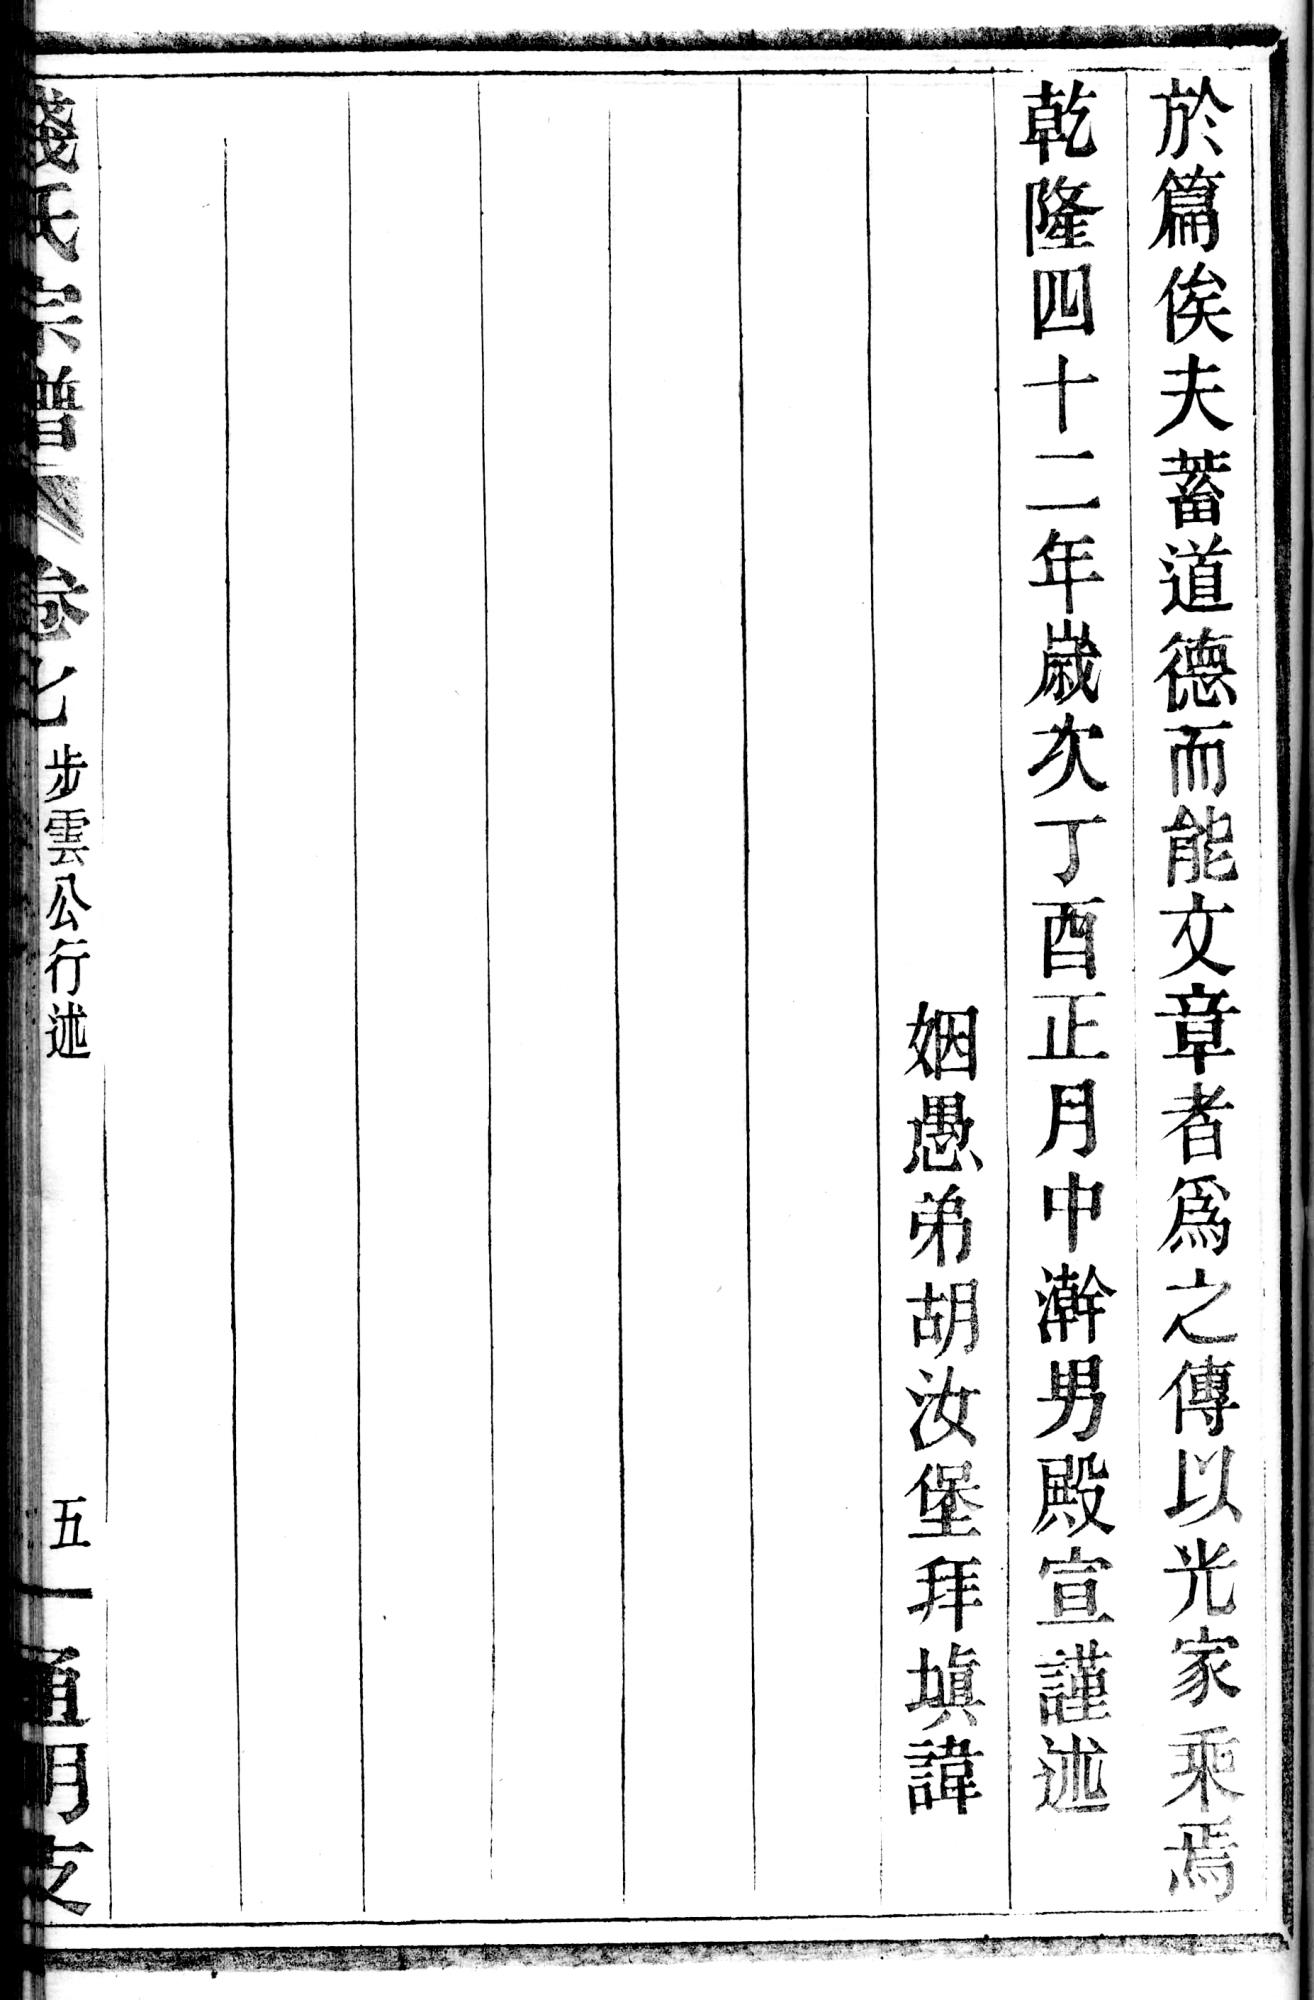 於篇俟夫蓄道德而能文章者爲之傳以光家乘焉
乾隆四十二年歲次丁酉正月中澣男殿宣謹述
姻愚弟胡汝堡拜塡諱
錢氏宗譜 卷七 步雲公行述 五 通明支